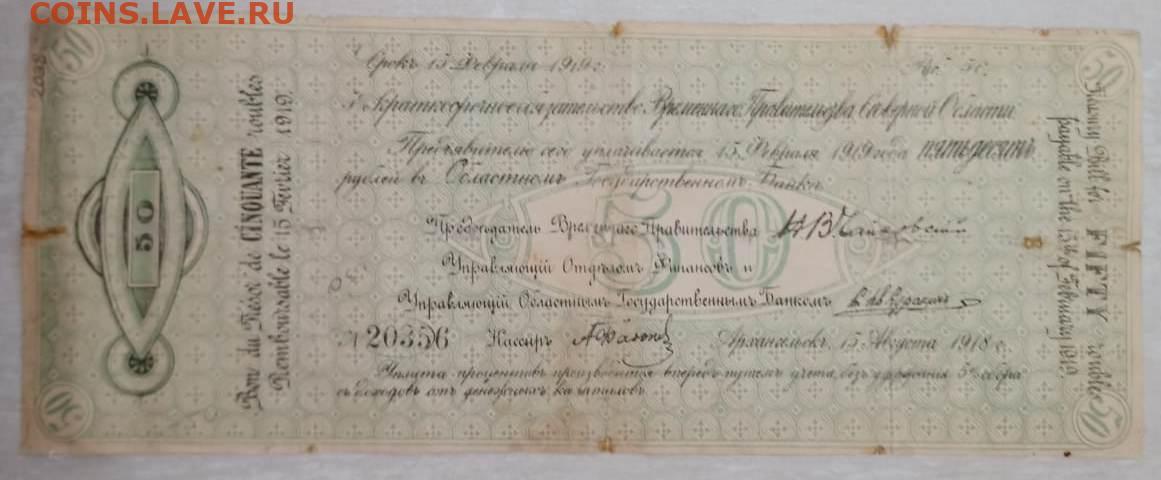 COINS.LAVE.RU
50
50
50
Bon du Trésor de CINQUANTE roubles
Remboursable le 15 Février 1919.
Срокъ 15 Февраля 1919 г.
50.
Краткосрочное обязательство Временнаго Правительства Северной Области
Предъявителю сего уплачивается 15 Февраля 1919 года пятьдесятъ
рублей въ Областномъ Государственномъ Банкѣ.
50
Председатель Временнаго Правительства Н В Чайковскій
Управляющій Отдѣломъ Финансовъ и
Управляющій Областнымъ Государственнымъ Банкомъ
№ 20356 Кассиръ Архангельскъ, 15 Августа 1918 г.
Уплата процентовъ производится впередъ путемъ учета, безъ удержания 5% сбора
съ доходовъ отъ денежныхъ капиталовъ.
50
Treasury Bill for FIFTY roubles
payable on the 15th of February 1919
50